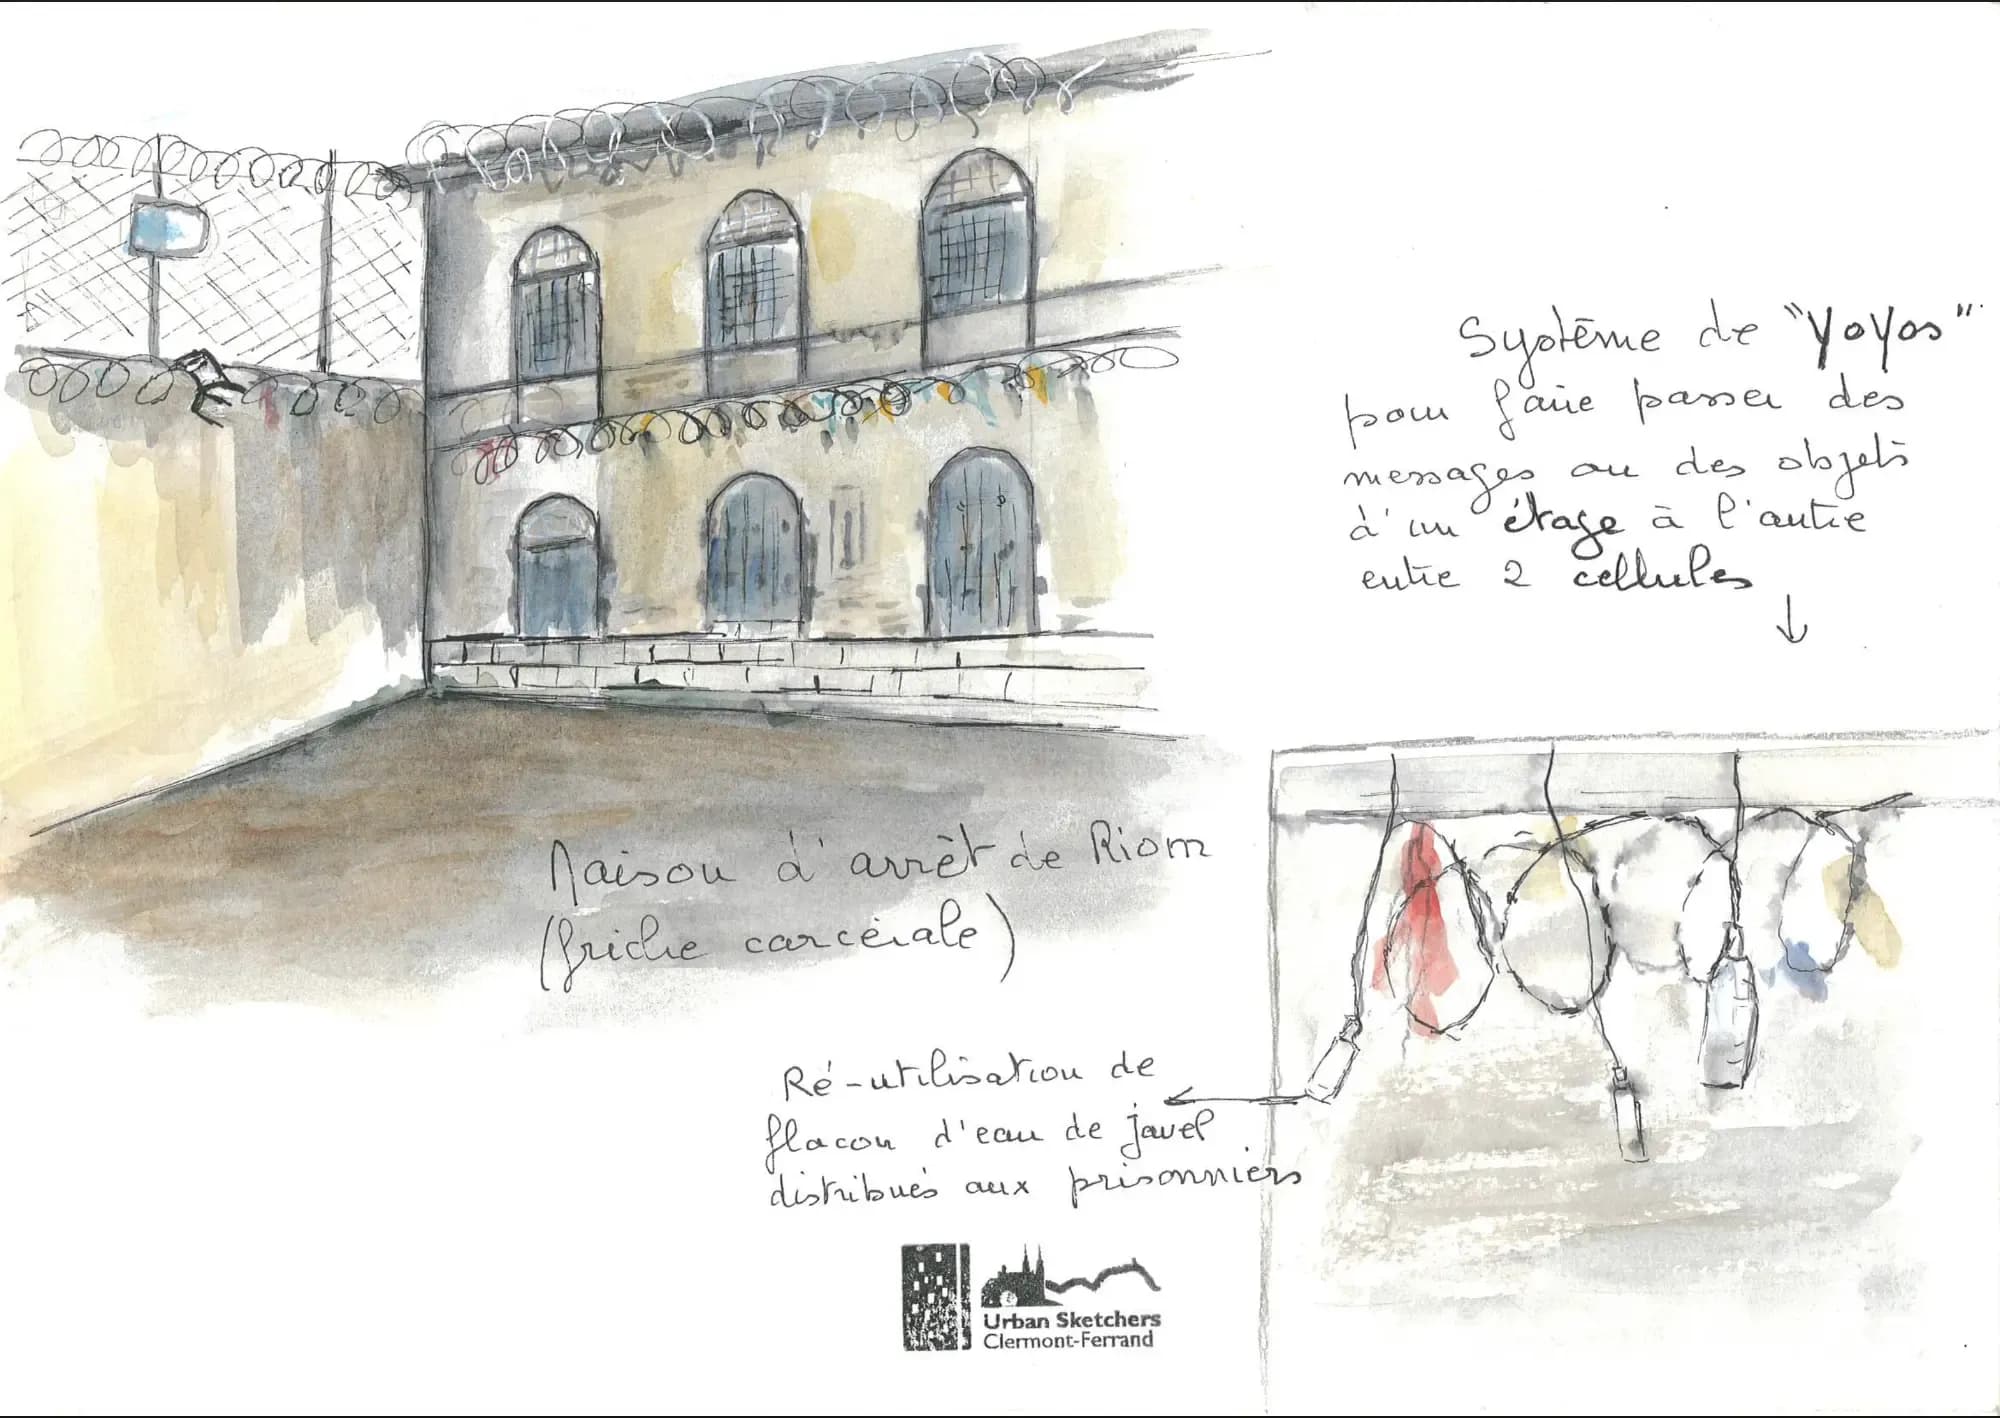 Système de "YoYos"
pour faire passer des
messages ou des objets
d'un étage à l'autre
entre 2 cellules
Maison d'arrêt de Riom
(friche carcérale)
Ré-utilisation de
flacon d'eau de javel
distribués aux prisonniers
Urban Sketchers
Clermont-Ferrand